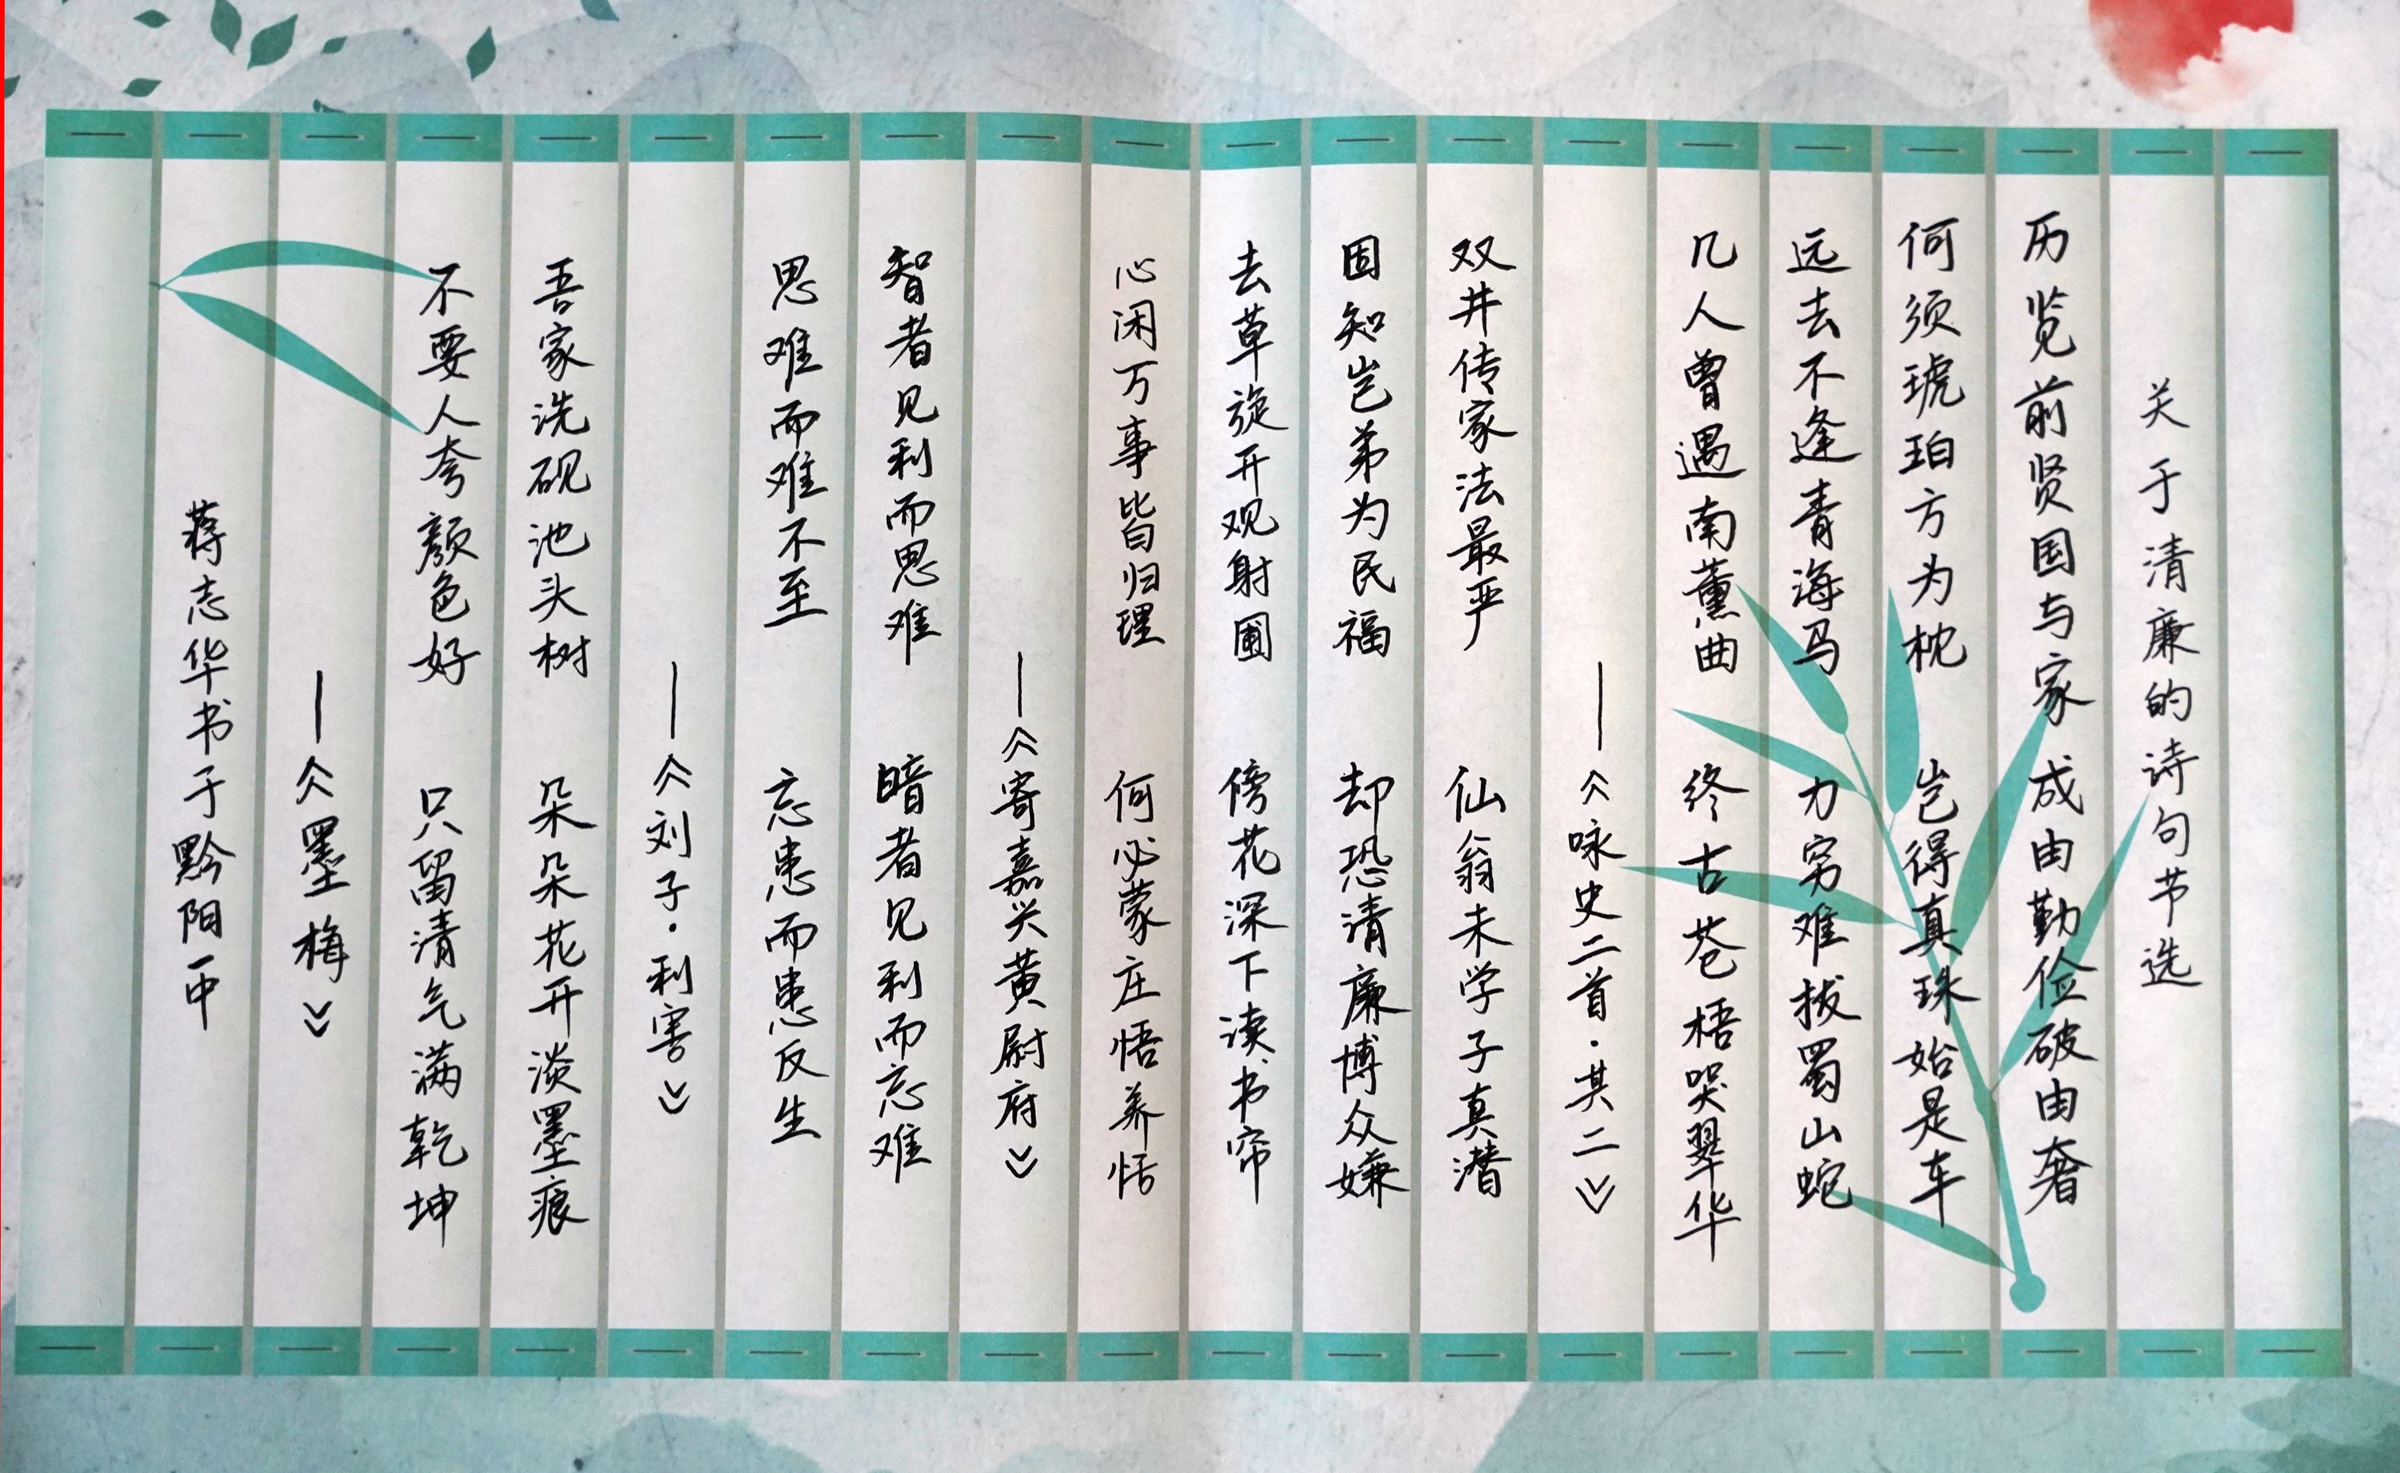 关于清廉的诗句节选
历览前贤国与家 成由勤俭破由奢
何须琥珀方为枕 岂得真珠始是车
远去不逢青海马 力穷难拔蜀山蛇
几人曾遇南薰曲 终古苍梧哭翠华
——《咏史二首·其二》
双井传家法最严 仙翁未学子真潜
固知岂弟为民福 却恐清廉博众嫌
去草旋开观射圃 傍花深下读书帘
心闲万事皆归理 何必蒙庄悟养恬
——《寄嘉兴黄尉府》
智者见利而思难 暗者见利而忘难
思难而难不至 忘患而患反生
——《刘子·利害》
吾家洗砚池头树 朵朵花开淡墨痕
不要人夸颜色好 只留清气满乾坤
——《墨梅》
蒋志华书于黔阳一中